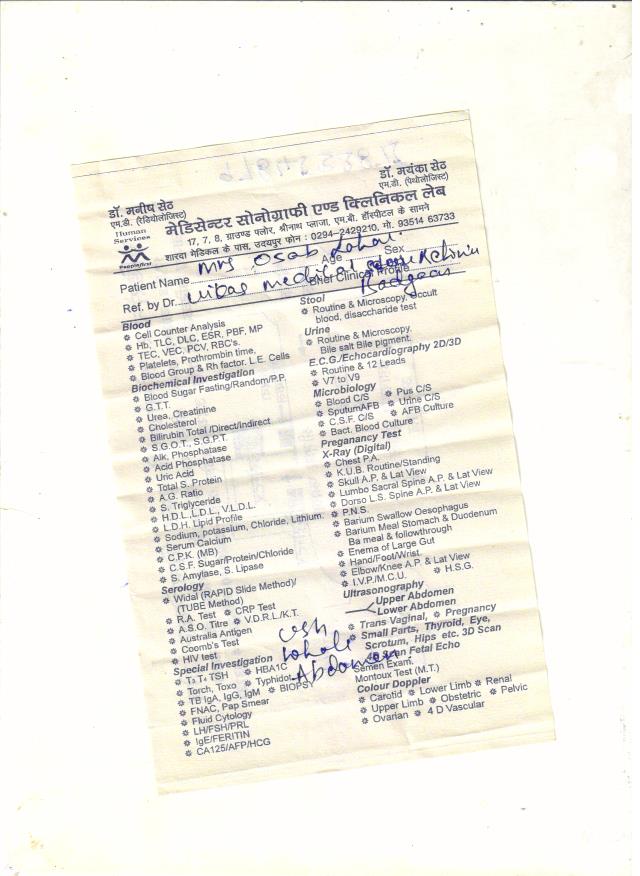 डॉ. मनीष सेठ
एम.डी. (रेडियोलोजिस्ट)
डॉ. मयंका सेठ
एम.डी. (पेथोलोजिस्ट)
Human
Services
Peoplefirst
मेडिसेन्टर सोनोग्राफी एण्ड क्लिनिकल लेब
17, 7, 8, ग्राउण्ड फ्लोर, श्रीनाथ प्लाजा, एम.बी. हॉस्पीटल के सामने
शारदा मेडिकल के पास, उदयपुर फोन : 0294-2429210, मो. 93514 63733
Patient Name Mrs Osab Lohar Age Sex
Ref. by Dr. Brief Clinical Profile
Blood
Cell Counter Analysis
Hb, TLC, DLC, ESR, PBF, MP
TEC, VEC, PCV, RBC's.
Platelets, Prothrombin time,
Blood Group & Rh factor. L.E. Cells
Biochemical Investigation
Blood Sugar Fasting/Random/P.P.
G.T.T.
Urea, Creatinine
Cholesterol
Bilirubin Total /Direct/Indirect
S.G.O.T., S.G.P.T.
Alk. Phosphatase
Acid Phosphatase
Uric Acid
Total S. Protein
A.G. Ratio
S. Triglyceride
H.D.L.,L.D.L., V.L.D.L.
L.D.H. Lipid Profile
Sodium, potassium, Chloride, Lithium.
Serum Calcium
C.P.K. (MB)
C.S.F. Sugar/Protein/Chloride
S. Amylase, S. Lipase
Serology
Widal (RAPID Slide Method)/
(TUBE Method)
R.A. Test CRP Test
A.S.O. Titre V.D.R.L./K.T.
Australia Antigen
Coomb's Test
HIV test
Special Investigation
T3 T4 TSH HBA1C
Torch, Toxo Typhidot
TB IgA, IgG, IgM BIOPSY
FNAC, Pap Smear
Fluid Cytology
LH/FSH/PRL
IgE/FERITIN
CA125/AFP/HCG
Stool
Routine & Microscopy, occult
blood, disaccharide test
Urine
Routine & Microscopy.
Bile salt Bile pigment.
E.C.G./Echocardiography 2D/3D
Routine & 12 Leads
V7 to V9
Microbiology
Blood C/S Pus C/S
SputumAFB Urine C/S
C.S.F. C/S AFB Culture
Bact. Blood Culture
Pregnancy Test
X-Ray (Digital)
Chest P.A.
K.U.B. Routine/Standing
Skull A.P. & Lat View
Lumbo Sacral Spine A.P. & Lat View
Dorso L.S. Spine A.P. & Lat View
P.N.S.
Barium Swallow Oesophagus
Barium Meal Stomach & Duodenum
Ba meal & followthrough
Enema of Large Gut
Hand/Foot/Wrist
Elbow/Knee A.P. & Lat View
I.V.P/M.C.U. H.S.G.
Ultrasonography
Upper Abdomen
Lower Abdomen
Trans Vaginal, Pregnancy
Small Parts, Thyroid, Eye,
Scrotum, Hips etc. 3D Scan
Fetal Echo
Semen Exam.
Montoux Test (M.T.)
Colour Doppler
Carotid Lower Limb Renal
Upper Limb Obstetric Pelvic
Ovarian 4 D Vascular
whole
Abdomen